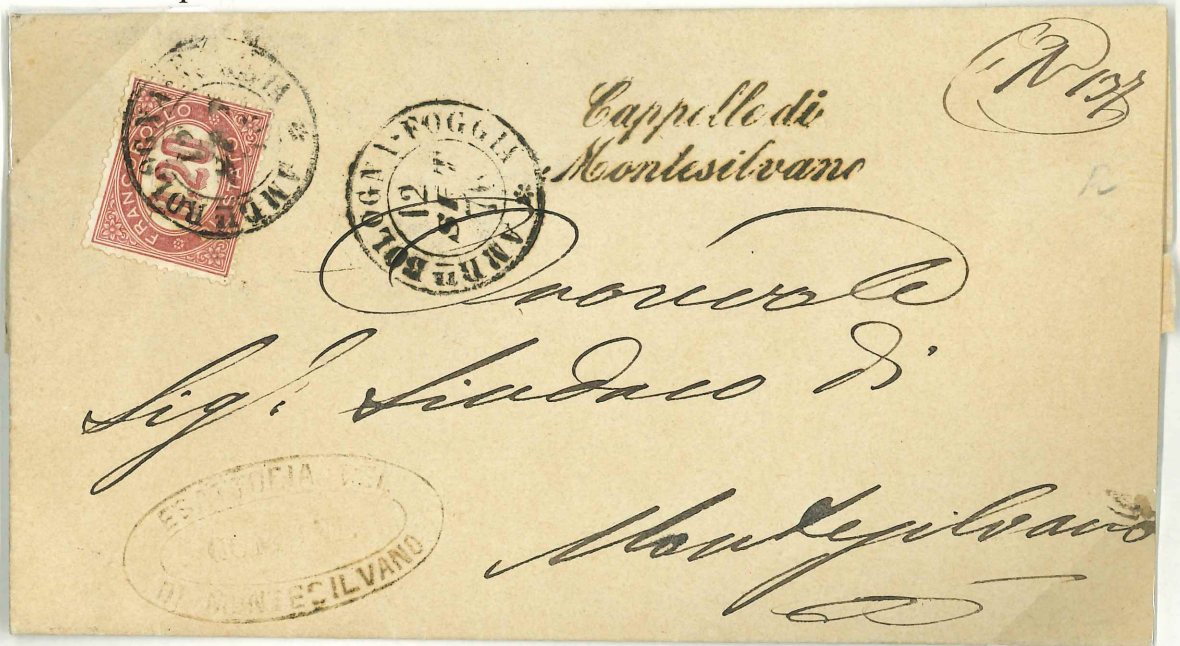 FRANCOBOLLO DI STATO
20
AMB.TE BOLOGNA-FOGGIA
12
SET
AMB.TE BOLOGNA-FOGGIA
Cappelle di
Montesilvano
N 137
Onorevole
Sig.r Sindaco di
Montesilvano
ESATTORIA DEL
DI MONTESILVANO